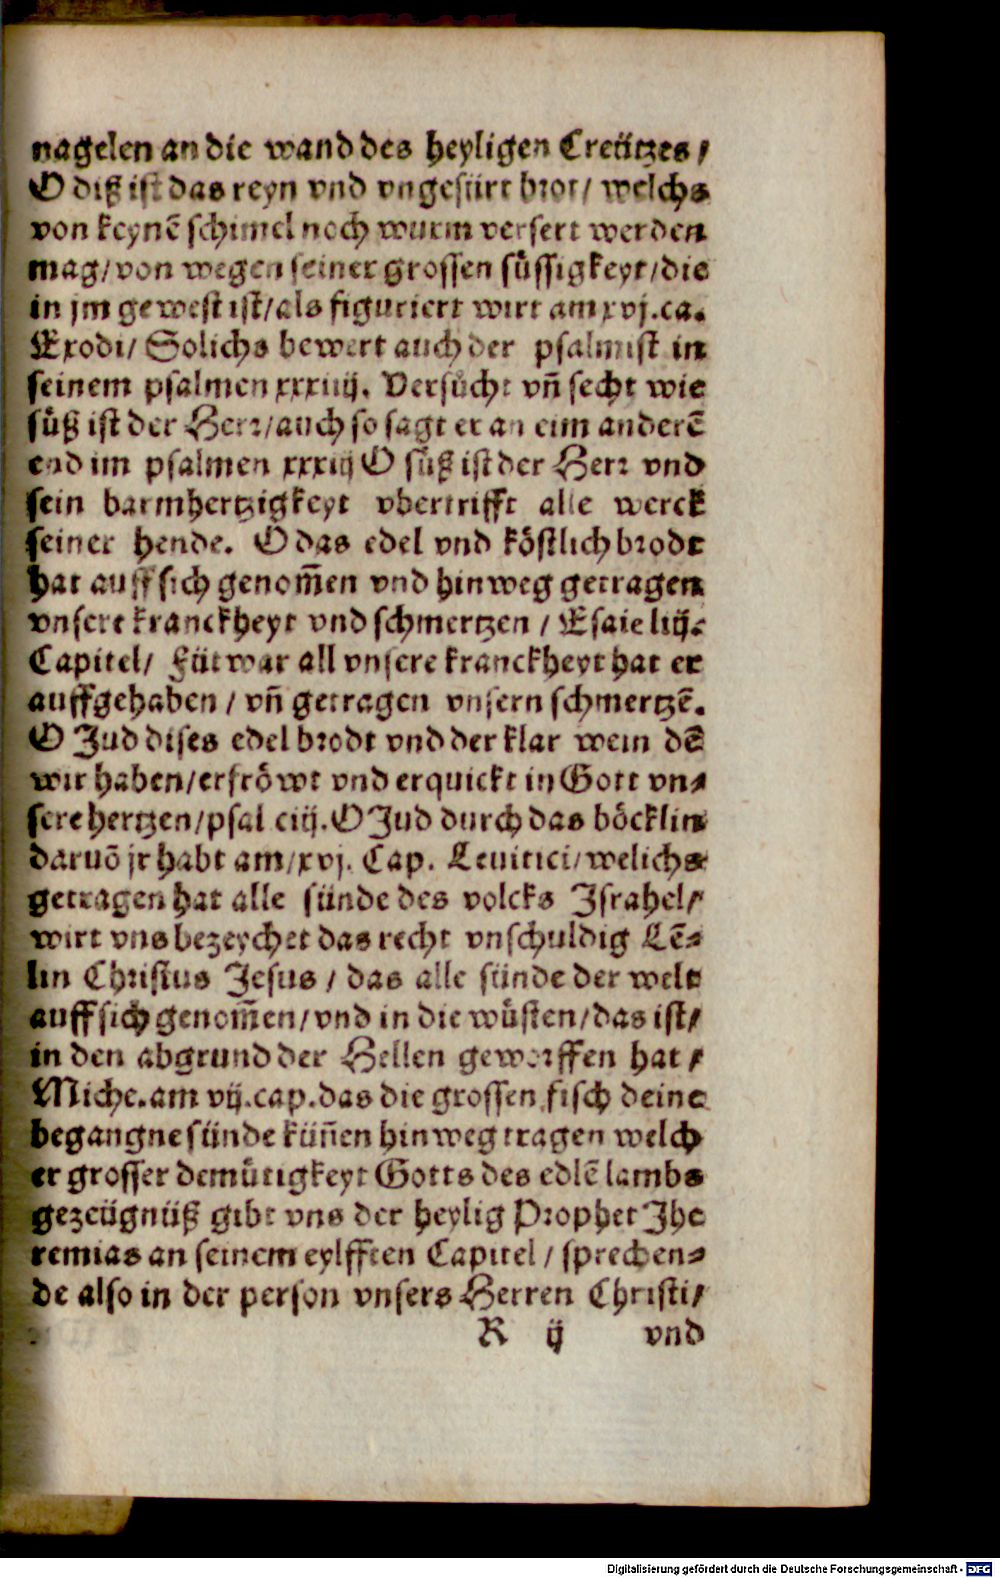 nagelen an die wand des heyligen Creützes /
O diß ist das reyn vnd vngesürt brot / welchs
von keynē schimel noch wurm versert werden
mag / von wegen seiner grossen süssigkeyt / die
in jm gewest ist / als figuriert wirt am xvj. ca.
Exodi / Solichs bewert auch der psalmist in
seinem psalmen xxxiiij. Versůcht vñ secht wie
süß ist der Herr / auch so sagt er an eim anderē
end im psalmen xxxiij O süß ist der Herr vnd
sein barmhertzigkeyt vbertrifft alle werck
seiner hende. O das edel vnd köstlich brodt
hat auff sich genom̃en vnd hinweg getragen
vnsere kranckheyt vnd schmertzen / Esaie liij.
Capitel / Fürwar all vnsere kranckheyt hat er
auffgehaben / vñ getragen vnsern schmertzē.
O Jud dises edel brodt vnd der klar wein dē
wir haben / erfröwt vnd erquickt in Gott vn⸗
sere hertzen / psal ciij. O Jud durch das böcklin
daruō jr habt am / xvj. Cap. Leuitici / welichs
getragen hat alle sünde des volcks Jsrahel /
wirt vns bezeychet das recht vnschuldig Lē⸗
lin Christus Jesus / das alle sünde der welt
auff sich genom̃en / vnd in die wüsten / das ist /
in den abgrund der Hellen geworffen hat /
Miche. am vij. cap. das die grossen fisch deine
begangne sünde küñen hinweg tragen welch
er grosser demütigkeyt Gotts des edlē lambs
gezeügnüß gibt vns der heylig Prophet Jhe
remias an seinem eylfften Capitel / sprechen⸗
de also in der person vnsers Herren Christi /
R ij vnd
Digitalisierung gefördert durch die Deutsche Forschungsgemeinschaft - DFG